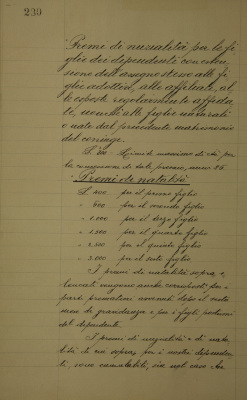 239
"Premi di nuzialità per le fi
glie dei dipendenti con esten
sione dell'assegno stesso alle fi
glie adottive, alle affiliate, al
le esposte regolarmente affida
te, nonchè alle figlie naturali
e nate dal precedente matrimonio
del coniuge.
limite massimo di età per
la concessione di tale premio, anni 26
"Premi di natalità:
£ 400 per il primo figlio
" 600 per il secondo figlio
" 1.000 per il terzo figlio
" 1.500 per il quarto figlio
" 2.500 per il quinto figlio
" 3.000 per il sesto figlio
I premi di natalità sopra e
lencati vengono anche corrisposti per
parti prematuri avvenuti dopo il sesto
mese di gravidanza e per i figli postumi
del dipendente.
I premi di nuzialità e di nata
lità di cui sopra, per i nostri dipenden
ti, sono cumulabili, sia nel caso che